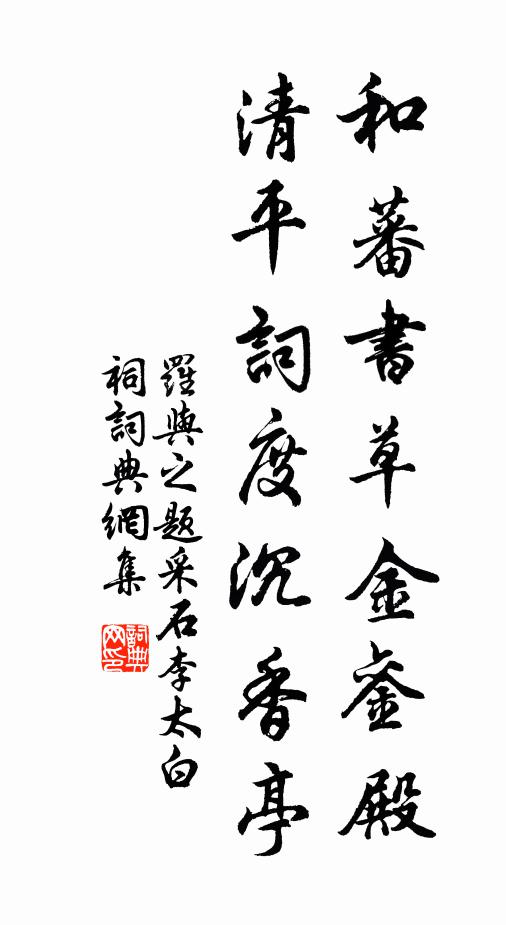 和蕃書草金銮殿
清平詞度沉香亭
羅與之题采石李太白
祠詞典網集
詞典網印